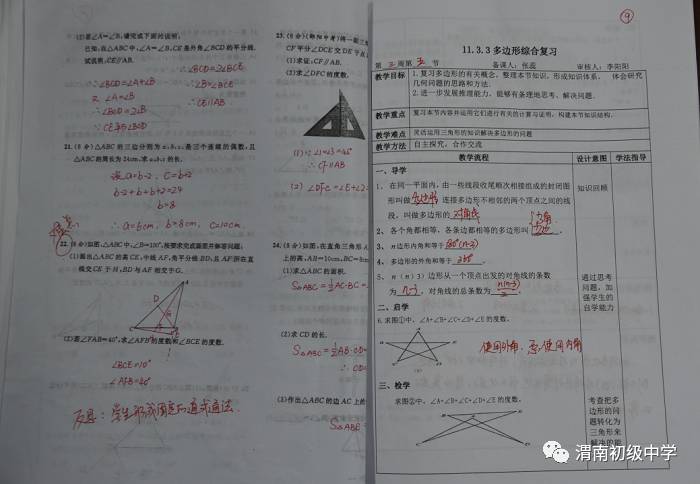 (2)若∠A=∠B,请完成下面的说明:
已知:在△ABC中,∠A=∠B,CE是外角∠BCD的平分线.
试说明:CE∥AB.
∵∠BCD=∠A+∠B
又 ∠A=∠B
∴∠BCD=2∠B
∵CE平分∠BCD
∴∠BCD=2∠BCE
∴∠B=∠BCE
∴CE∥AB
21.(8分)△ABC的三边分别为a,b,c,是三个连续的偶数,且
△ABC的周长为24cm,求a,b,c的长.
设a=b-2, c=b+2
b-2+b+b+2=24
b=8
∴a=6cm, b=8cm, c=10cm.
(1)画出△ABC的高CE,中线AF,角平分线BD,且AF所在直
线交CE于H,BD与AF相交于G.
(2)若∠FAB=40°,求∠AFB的度数和∠BCE的度数.
∠BCE=10°
∠AFB=40°
反思:学生形成固定的通式通法.
CF平分∠DCE交DE于点
(1)求证:CF∥AB.
(2)求∠DFC的度数.
(1) ∵∠1=∠3=45°
∴CF∥AB
24.(8分)如图,在直角三角形A
上的高,AB=10cm,BC=8
(1)求△ABC的面积.
(2)求CD的长.
(3)作出△ABC的边AC上的
⑨
11.3.3多边形综合复习
备课人:张蕊 审核人:李阳阳
教学目标 1.复习多边形的有关概念,整理本节知识,形成知识体系, 体会研究
几何问题的思路和方法.
2.进一步发展推理能力,能够有条理地思考、解决问题.
教学重点 复习本节内容并运用它们进行有关的计算与证明,构建本节知识结构.
教学难点 灵活运用三角形的知识解决多边形的问题
教学方法 自主探究,合作交流
教学流程 设计意图 学法指导
一、导学
1、在同一平面内,由一些线段收尾顺次相接组成的封闭图
形叫做多边形,连接多边形不相邻的两个顶点之间的线
段,叫做多边形的对角线
知识回顾
2、各个角都相等,各条边都相等的多边形叫
3、n边形内角和等于180°(n-2)
4、多边形的外角和等于360°
5、n(n≥3)边形从一个顶点出发的对角线的条数
为n-3,对角线的总条数为n(n-3)/2
通过思考
问题,加
强学生的
自学能力
二、启学
6.求图①中,∠A+∠B+∠C+∠D+∠E的度数.
三、检学
求图②中,∠A+∠B+∠C+∠D+∠E的度数.
考查把多
边形的问
题转化为
三角形来
解决的能
渭南初级中学